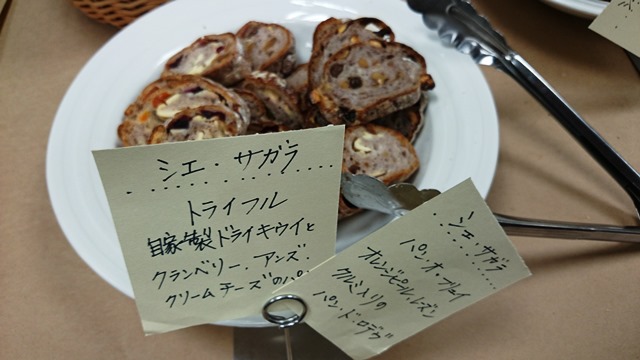 シエ・サガラ
トライフル
自家製ドライキウイと
クランベリー・アンズ・
クリームチーズのパ
シエ・サガラ
パン・オ・フリュイ
オレンジピール・レーズン
クルミ入りの
パン・ド・ロデヴ